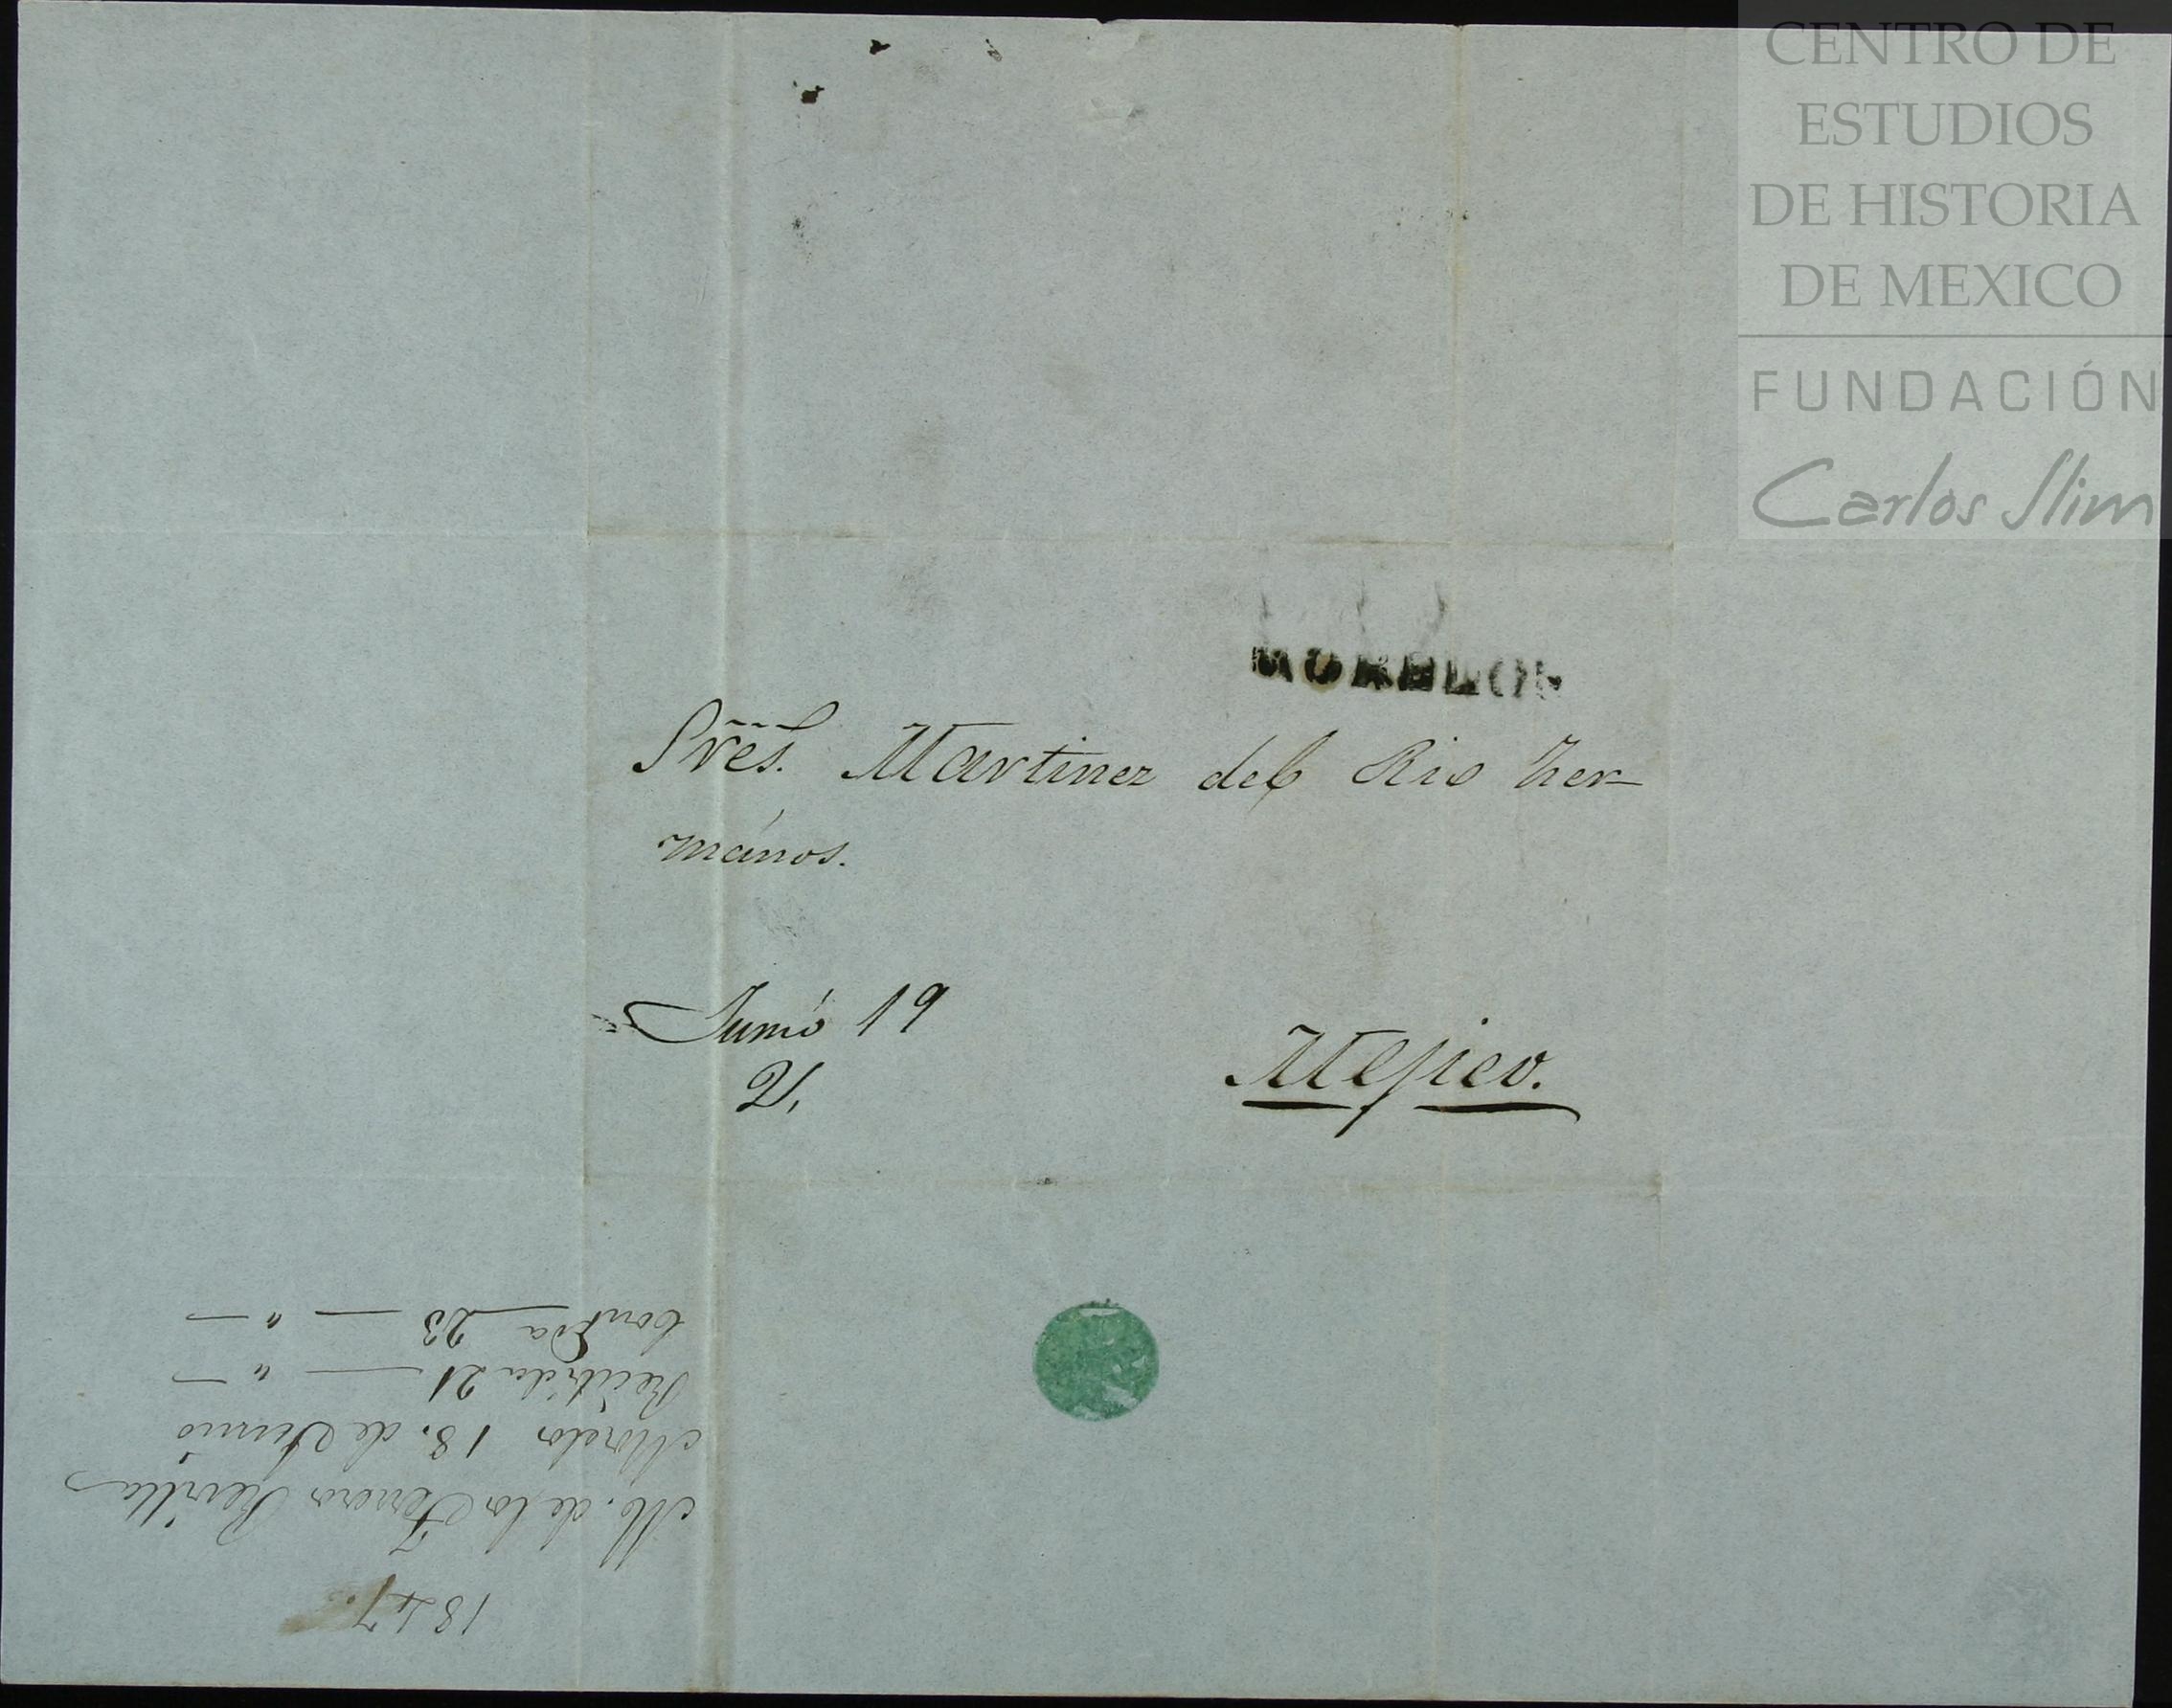 CENTRO DE
ESTUDIOS
DE HISTORIA
DE MEXICO
FUNDACIÓN
Carlos Slim
MORELOS
Sres. Martinez del Rio her-
mános.
Junio 19
Mejico.
1847.
M. de la Revilla
Morelos 18. de Junio
Recibida 21 — " —
Contda 23 — " —